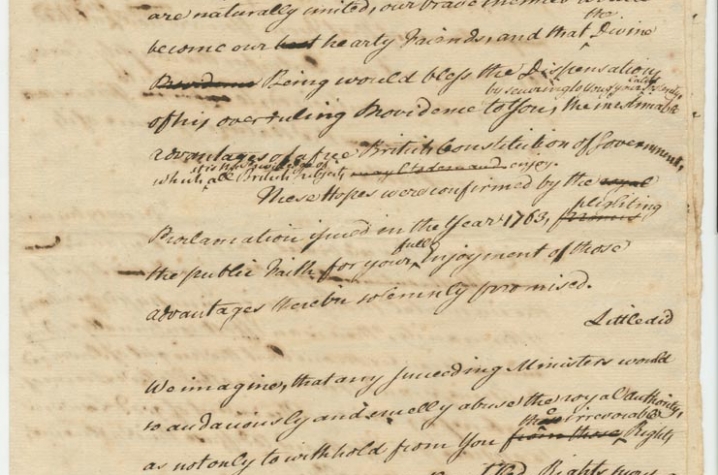 are naturally united, our brave enemies would
become our best hearty Friends, and that the Divine
Providence Being would bless the Dispensations
by securing to You
of his over ruling Providence to You, the inestimable
advantages of a free British Constitution of Government,
it is the privilege of
which all British subjects may to demand enjoy.
These Hopes were confirmed by the royal
plighting
Proclamation issued in the Year 1763,
the public Faith for your full enjoyment of those
advantages therein solemnly promised.
Little did
We imagine, that any succeeding Ministers would
so audaciously and cruelly abuse the royal Authority,
the irrevocable
as not only to withhold from You from those Rights
Rights